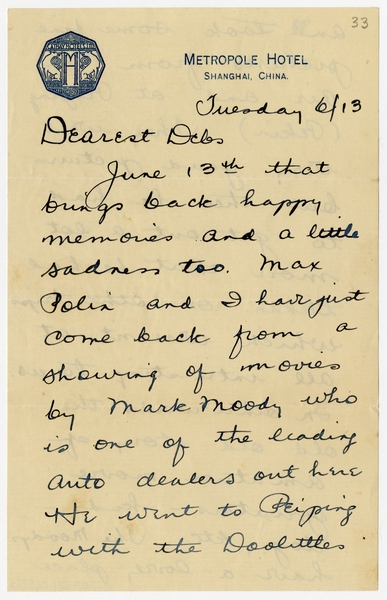 33
CATHAY HOTELS LTD
METROPOLE HOTEL
SHANGHAI, CHINA.
Tuesday 6/13
Dearest Debs
June 13th that
brings back happy
memories and a little
sadness too. Max
Polin and I have just
come back from a
showing of movies
by Mark Moody who
is one of the leading
auto dealers out here
He went to Peiping
with the Doolittles